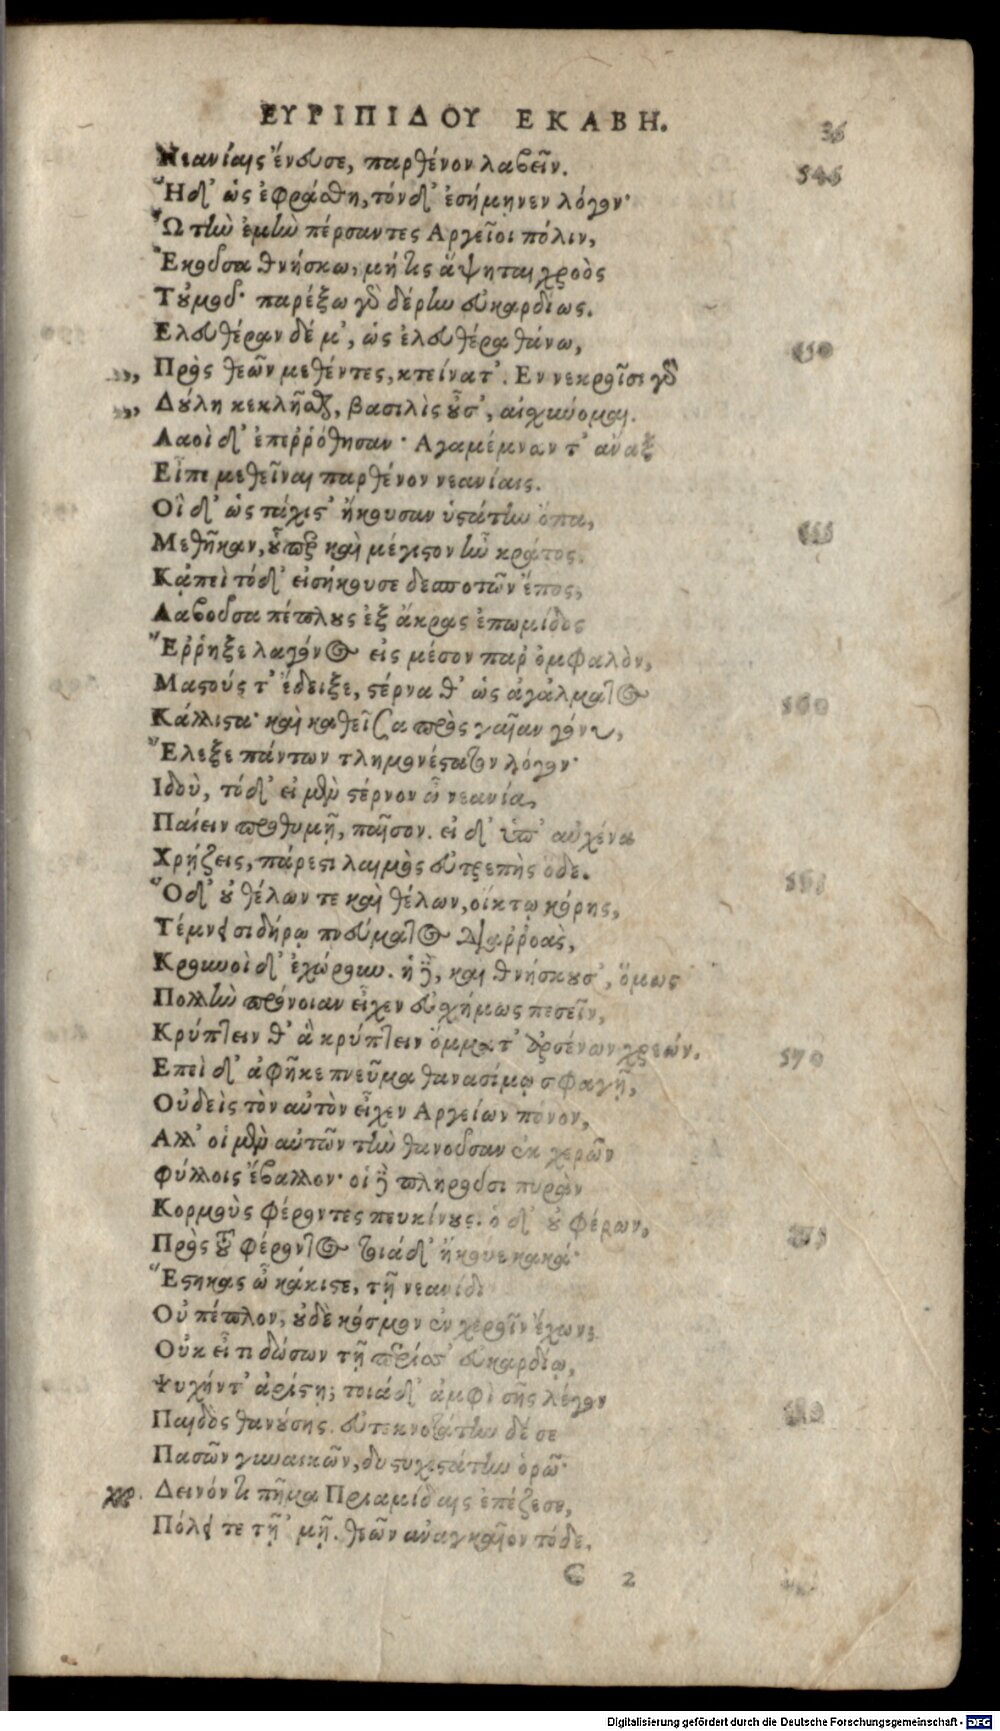 ΕΥΡΙΠΙΔΟΥ ΕΚΑΒΗ.
36
Νεανίαις ἔνευσε, παρθένον λαβεῖν.
545
Ἡ δ' ὡς ἐφράσθη, τόν δ' ἐσήμηνεν λόγον·
Ὦ τὴν ἐμὴν πέρσαντες Αργεῖοι πόλιν,
Ἑκοῦσα θνήσκω, μή τις ἅψηται χροὸς
Τοὐμοῦ· παρέξω γὸ δέρην εὐκαρδίως.
Ελευθέραν δέ μ', ὡς ἐλευθέρα θάνω,
550
,, Πρὸς θεῶν μεθέντες, κτείνατ'. Εν νεκροῖσι γὸ
,, Δούλη κεκλῆσθ, βασιλὶς οὖσ', αἰσχύνομαι.
Λαοὶ δ' ἐπεῤῥόθησαν· Αγαμέμνων τ' ἄναξ
Εἶπε μεθεῖναι παρθένον νεανίαις.
Οἳ δ' ὡς τάχιστ' ἤκουσαν ὑστάτην ὄπα,
555
Μεθῆκαν, οὗπερ καὶ μέγιστον ἦν κράτος.
Κᾀπεὶ τόδ' εἰσήκουσε δεσποτῶν ἔπος,
Λαβοῦσα πέπλους ἐξ ἄκρας ἐπωμίδος
Ἔῤῥηξε λαγόνος εἰς μέσον παρ' ὀμφαλὸν,
Μαστούς τ' ἔδειξε, στέρνα θ' ὡς ἀγάλματος
560
Κάλλιστα· καὶ καθεῖσα πρὸς γαῖαν γόνυ,
Ἔλεξε πάντων τλημονέστατον λόγον·
Ιδοὺ, τόδ' εἰ μὲν στέρνον ὦ νεανία,
Παίειν προθυμῇ, παῖσον. εἰ δ' ὑπ' αὐχένα
Χρῄζεις, πάρεστι λαιμὸς εὐτρεπὴς ὅδε.
565
Ὁ δ' οὐ θέλων τε καὶ θέλων, οἴκτῳ κόρης,
Τέμνει σιδήρῳ πνεύματος διαῤῥοὰς,
Κρουνοὶ δ' ἐχώρουν. ἡ δὲ, καὶ θνήσκουσ', ὅμως
Πολλὴν πρόνοιαν εἶχεν εὐσχήμως πεσεῖν,
Κρύπτειν θ' ἃ κρύπτειν ὄμματ' ἀρσένων χρεών.
570
Επεὶ δ' ἀφῆκε πνεῦμα θανασίμῳ σφαγῇ,
Οὐδεὶς τὸν αὐτὸν εἶχεν Αργείων πόνον,
Αλλ' οἱ μὲν αὐτῶν τὴν θανοῦσαν ἐκ χερῶν
Φύλλοις ἔβαλλον· οἱ δὲ πληροῦσι πυρὰν
Κορμοὺς φέροντες πευκίνους. ὁ δ' οὐ φέρων,
575
Πρὸς τοῦ φέροντος τοιάδ' ἤκουε κακά·
Ἕστηκας ὦ κάκιστε, τῇ νεανίδι
Οὐ πέπλον, οὐδὲ κόσμον ἐν χεροῖν ἔχων;
Οὐκ εἶ τι δώσων τῇ περίσσ' εὐκαρδίῳ,
Ψυχήν τ' ἀρίστῃ; τοιάδ' ἀμφὶ σῆς λέγον
580
Παιδὸς θανούσης. εὐτεκνοτάτην δέ σε
Πασῶν γυναικῶν, δυστυχεστάτην ὁρῶ·
χορ. Δεινόν τι πῆμα Πριαμίδαις ἐπέζεσε,
Πόλει τε τῇ' μῇ. θεῶν ἀναγκαῖον τόδε.
C 2
Digitalisierung gefördert durch die Deutsche Forschungsgemeinschaft - DFG